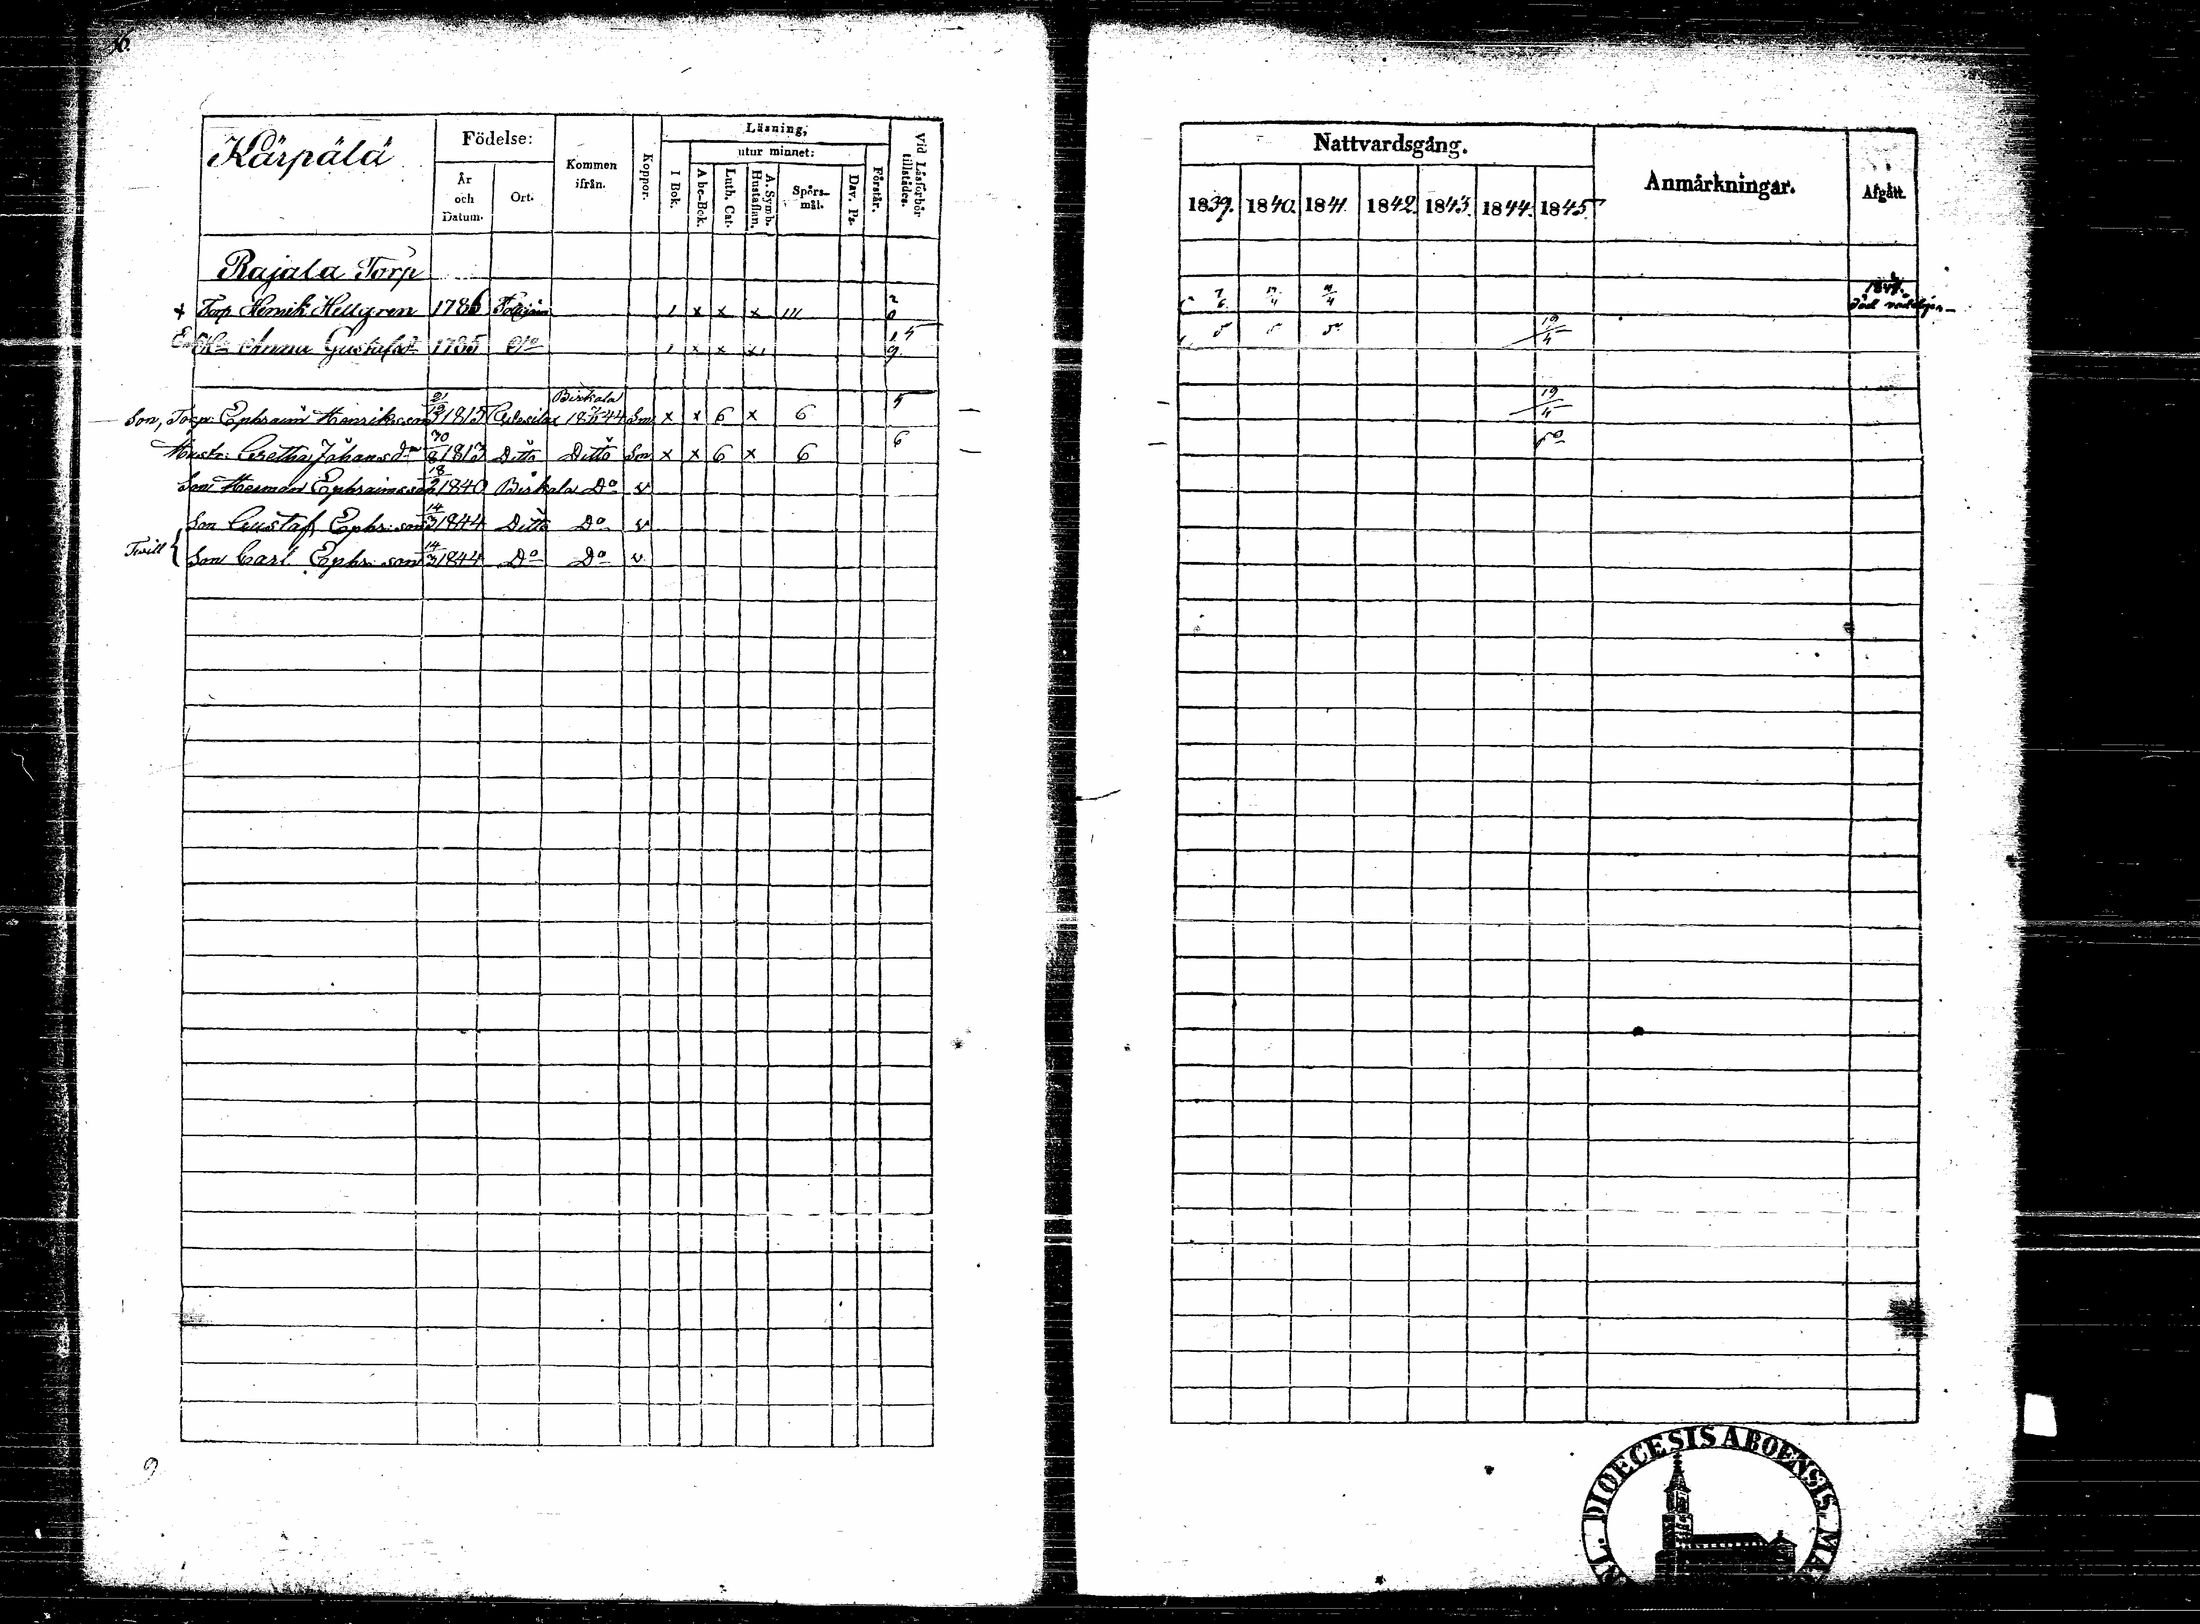 Kärpälä
Födelse:
År
och
Datum.
Ort.
Kommen
ifrån.
Koppor.
Läsning,
utur minnet:
I Bok.
Abc-Bok.
Luth. Cat.
A. Symb.
Hustaflan.
Spörs-
mål.
Dav. Ps.
Förstår.
Vid Läsförhör
tillstädes.
Rajala Torp
+ Torp Henrik Hellgren 1786 1 x x x 111 2 0
Anna Gustafsd 1785 Dto 1 x x x1 1 5 9
Son, Torp: Ephraim Henriksson 21/12 1815 Birkala 1844 x x 6 x 6 5
Hustr: Gretha Johansdr 30/8 1813 Ditto Ditto x x 6 x 6 6
Son Herman Ephraimsson 18/2 1840 Birkala Do v
Twill {
Son Gustaf, Ephr: son 14/3 1844 Ditto Do v
Son Carl Ephr: son 14/3 1844 Do Do v
Nattvardsgång.
1839. 1840. 1841. 1842. 1843. 1844. 1845
Anmärkningar.
Afgått.
7/6 4/4
19/4
19/4
DIOECESIS ABOENSIS